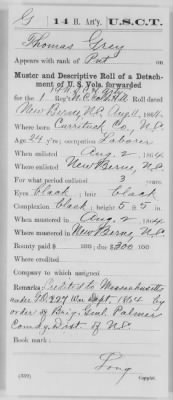 G | 14 H. Art'y. | U.S.C.T.
Thomas Grey
Appears with rank of Pvt on
Muster and Descriptive Roll of a Detach-
ment of U. S. Vols. forwarded
for the 1 Reg't N.C. Col'd H A Roll dated
New Berne, N.C. Aug 11, 1864.
Where born Currituck Co., N.C.
Age 24 y'rs; occupation Laborer
When enlisted Aug. 2, 1864.
Where enlisted New Berne, N.C.
For what period enlisted 3 years.
Eyes black; hair black
Complexion black; height 5 ft. 5 in.
When mustered in Aug. 2, 1864.
Where mustered in New Berne, N.C.
Bounty paid $ 100; due $300 100
Where credited
Company to which assigned
Remarks: Credited to Massachusetts
under G.O. 227 War Dept. 1864 by
order of Brig. Genl. Palmer
Comdg Dist. of N.C.
Book mark:
Long
(339) Copyist.